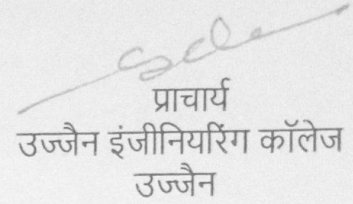 प्राचार्य
उज्जैन इंजीनियरिंग कॉलेज
उज्जैन